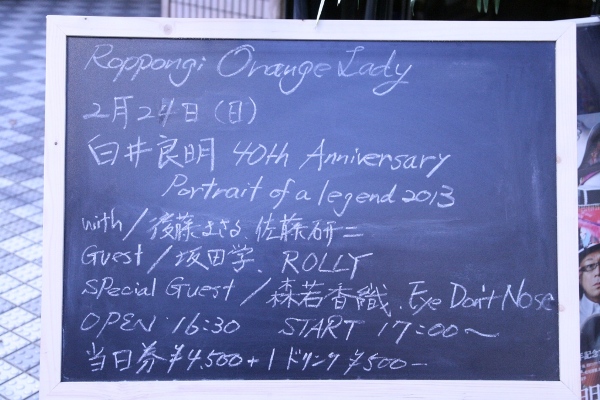 Roppongi Orange Lady
2月24日(日)
白井良明 40th Anniversary
Portrait of a legend 2013
with/後藤まさる、佐藤研二
Guest/坂田学、ROLLY
Special Guest/森若香織、Eye Don't Nose
OPEN 16:30 START 17:00〜
当日券¥4,500+1ドリンク¥500-